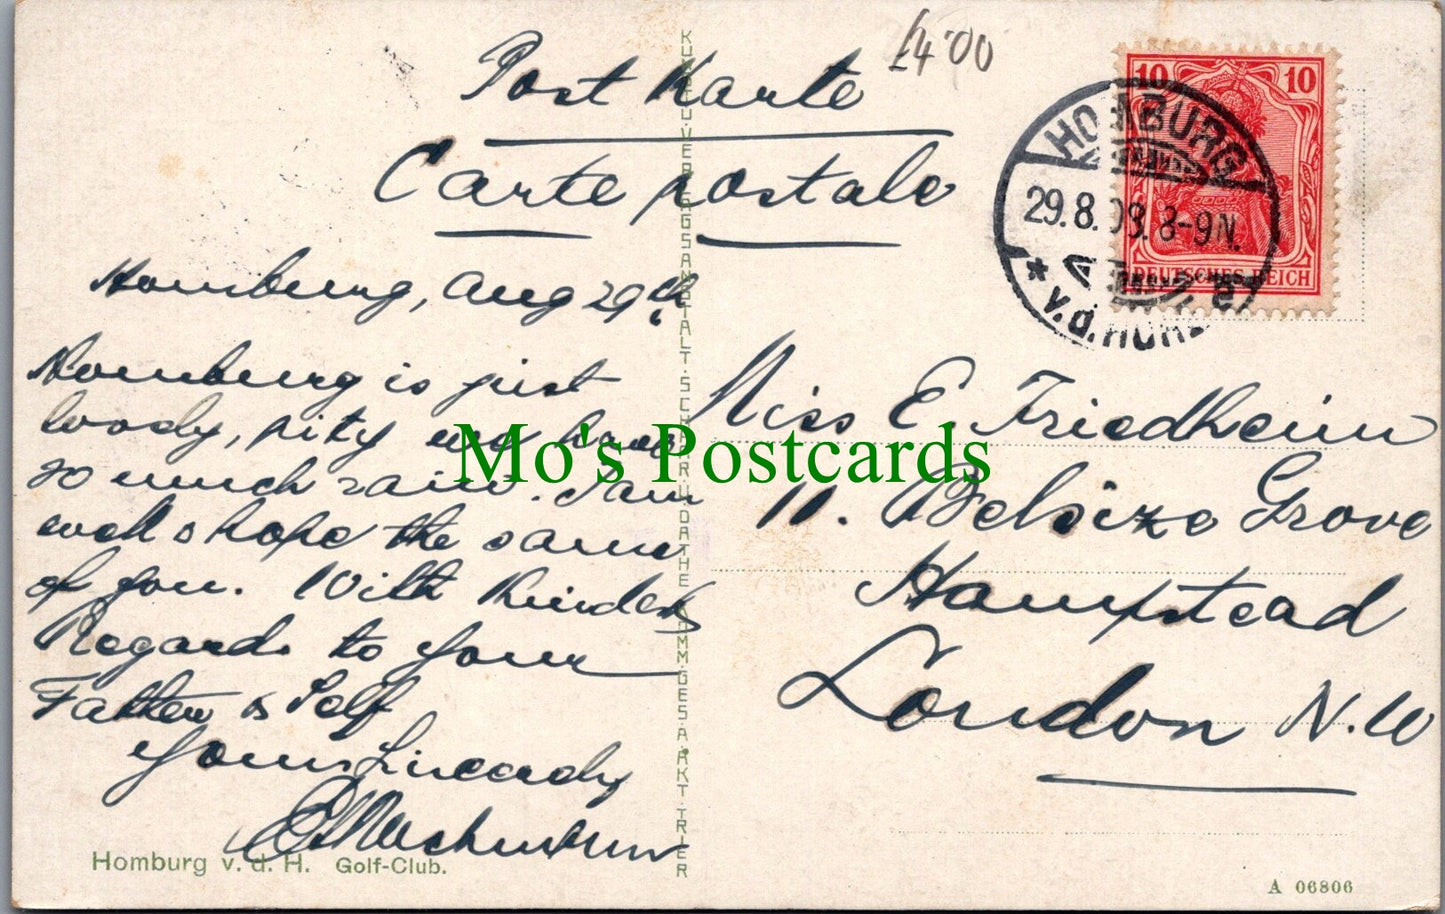 £4.00
Post Karte
Carte postale
Homburg, Aug 29th
Homburg is just
lovely, pity we have
so much rain. I am
well & hope the same
of you. With Kindest
Regards to your
Father & Self
Yours Sincerely
Homburg v. d. H. Golf-Club.
KUNST U. VERLAGSANSTALT SCHAAR U. DATHE KOMM. GES. A. AKT. TRIER
10 10
DEUTSCHES REICH
HOMBURG
29.8. 8-9N.
* v.d. HÖHE
Miss E. Friedheim
11. Belsize Grove
Hampstead
London N.W
A 06806
Mo's Postcards